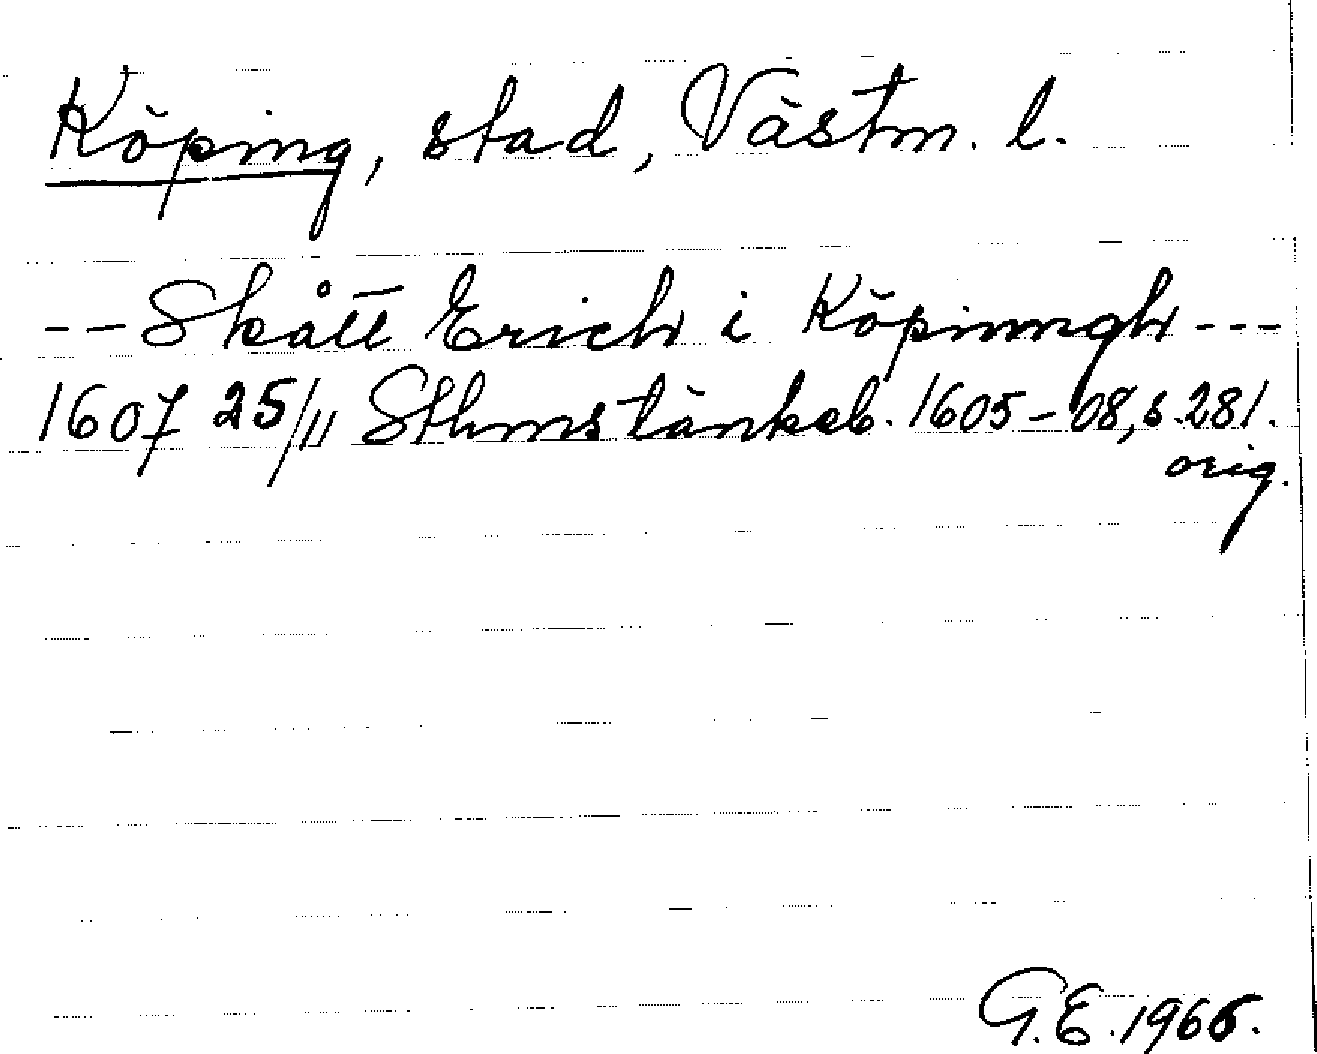 Köping, stad, Västm. l.
-- Skått Erich i Köpinngh ---
1607 25/11 Sthms tänkeb. 1605-08, s. 281.
orig.
G.E. 1966.